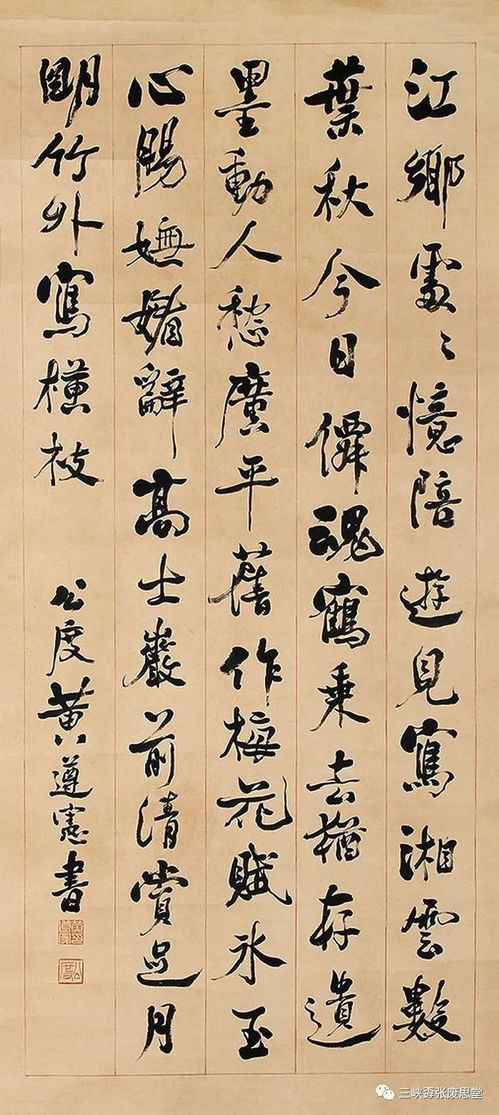 江鄉處々憶陪遊見寫湘雲數
葉秋今日僊魂鶴乘去猶存遺
墨動人愁廣平舊作梅花賦氷玉
心腸嫵媚辭高士巖前清賞足月
明竹外寫橫枝
公度黃遵憲書
三峡弄张废思堂